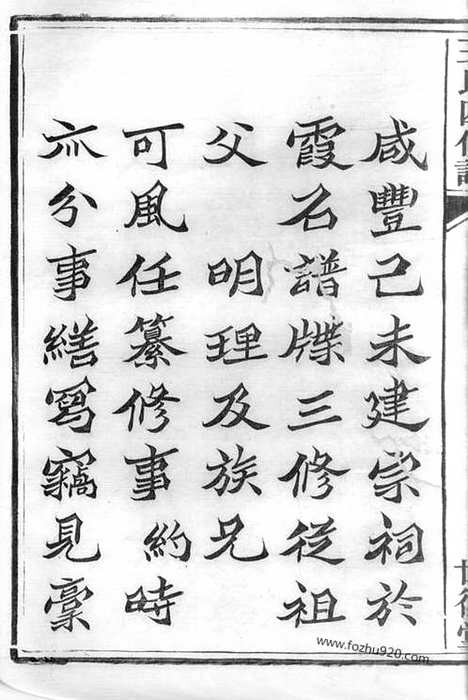 咸豐己未建宗祠於
霞名譜牒三修從祖
父 明理及族兄
可風任纂修事 約時
亦分事繕寫竊見稾
www.fozhu920.com